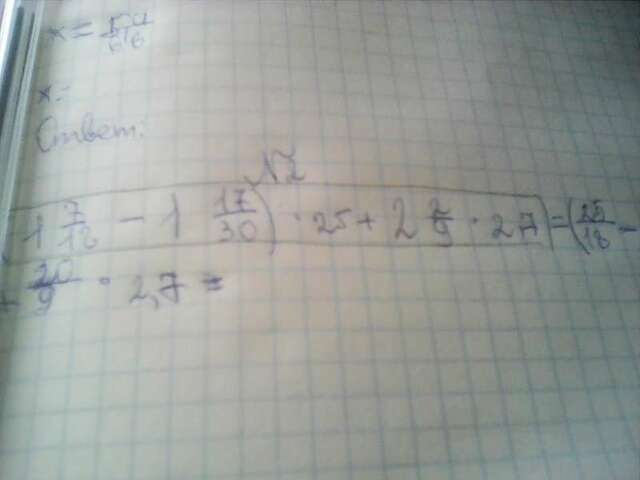 x =
x =
Ответ:
№2
(1 7/18 - 1 17/30) · 25 + 2 2/9 · 2,7 = (25/18 -
+ 20/9 · 2,7 =